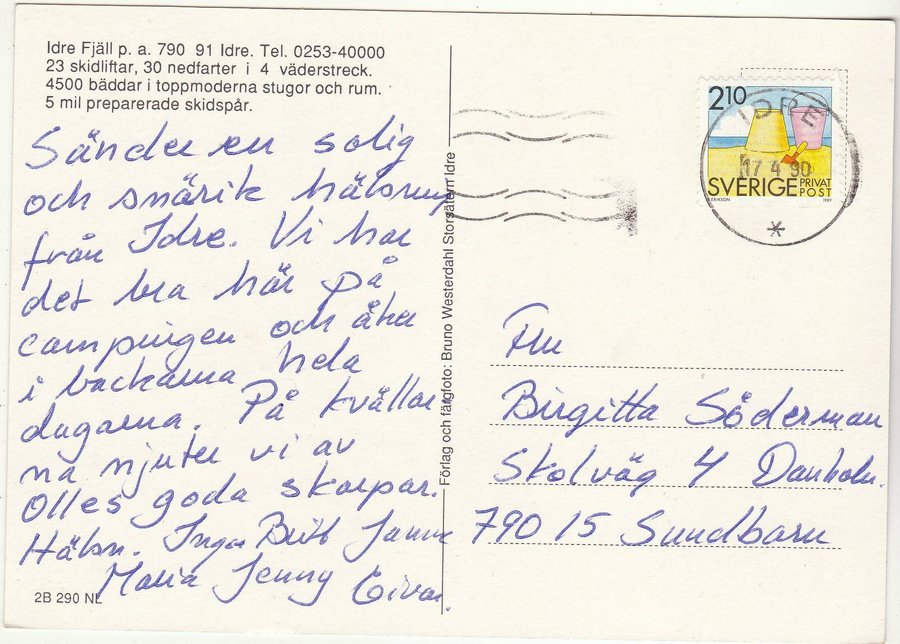 Idre Fjäll p. a. 790 91 Idre. Tel. 0253-40000
23 skidliftar, 30 nedfarter i 4 väderstreck.
4500 bäddar i toppmoderna stugor och rum.
5 mil preparerade skidspår.
Sänder en solig
och snörik hälsning
från Idre. Vi har
det bra här på
campingen och åker
i backarna hela
dagarna. På kvällar
na njuter vi av
Olles goda skorpar.
Hälsn. Inga Britt Janne
Maria Jenny
2B 290 NL
Förlag och färgfoto: Bruno Westerdahl Storsätern Idre
210
IDRE
17 4 90
SVERIGE PRIVAT POST
ERIKSON 1989
Fru
Birgitta Söderman
Skolväg 4 Danholn.
790 15 Sundborn